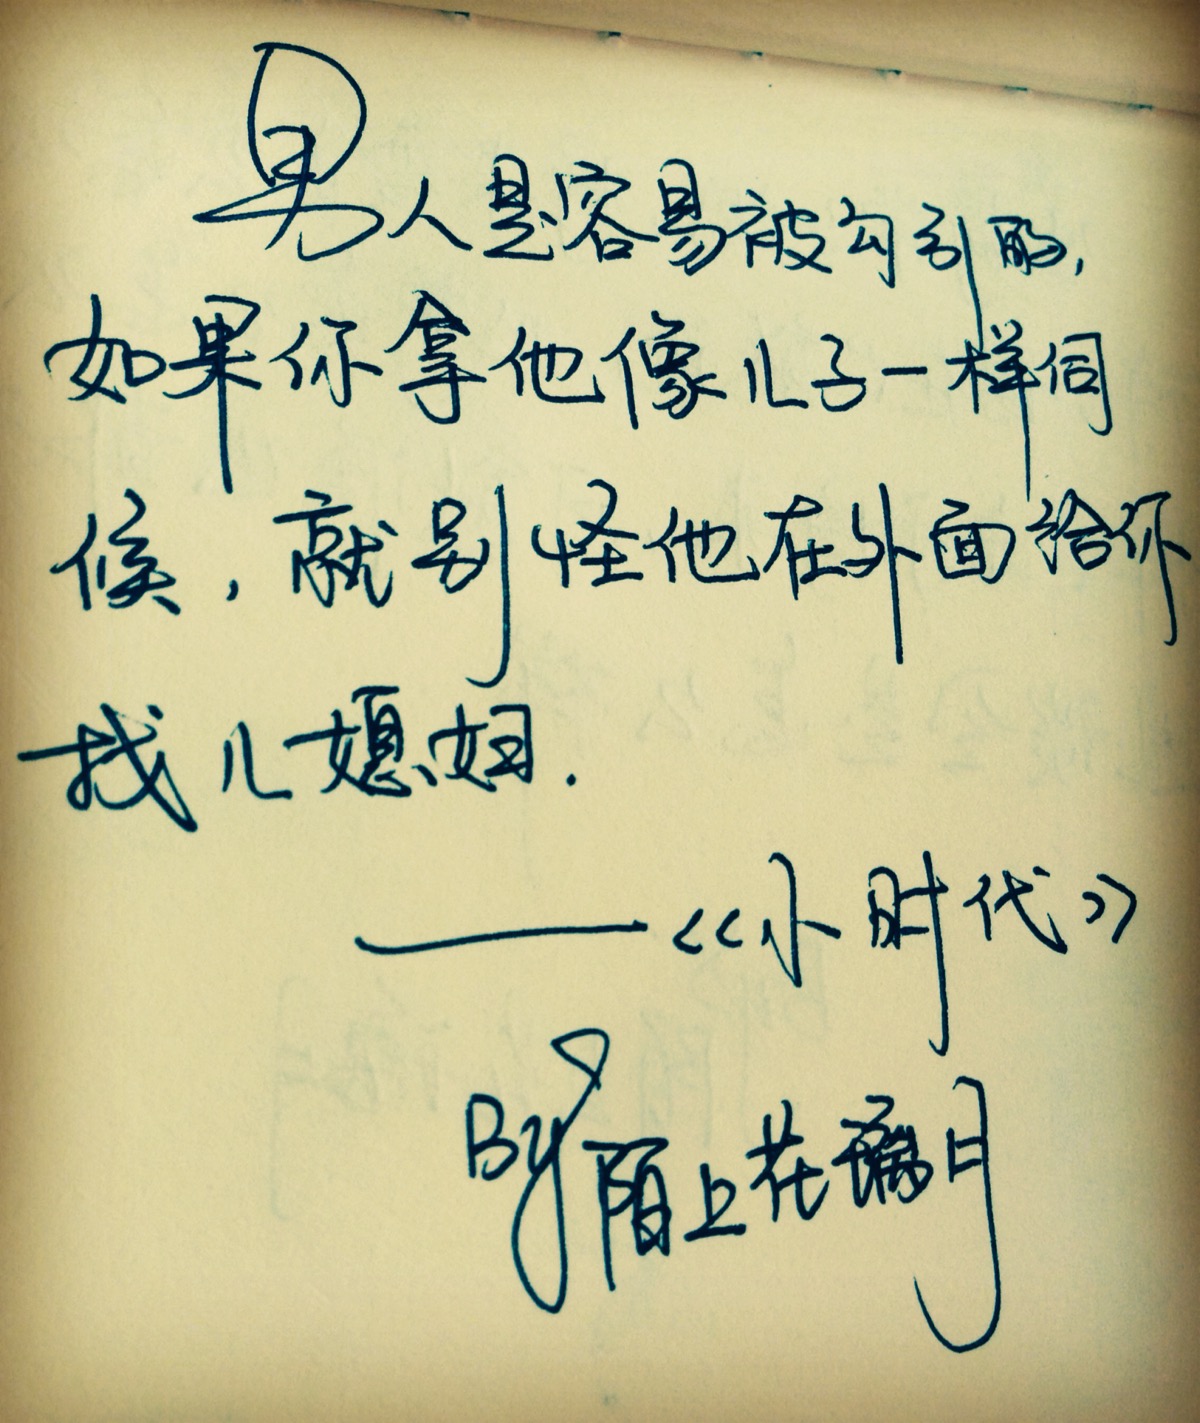 男人是容易被勾引的,
如果你拿他像儿子一样伺
候,就别怪他在外面给你
找儿媳妇.
——《小时代》
By陌上花 月